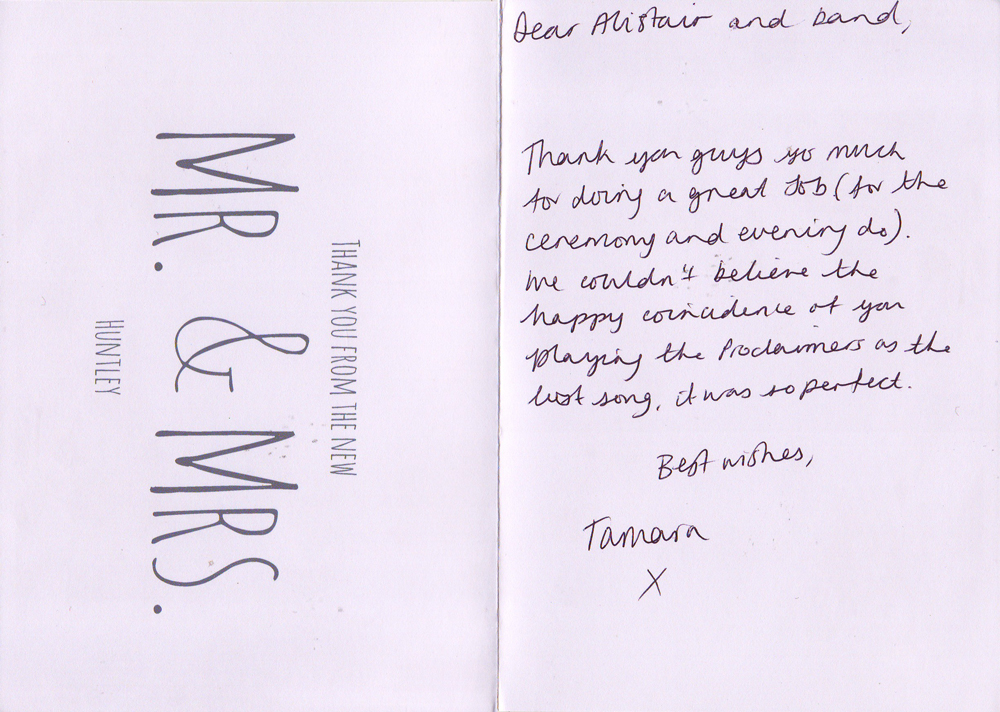 THANK YOU FROM THE NEW
MR. & MRS.
HUNTLEY
Dear Alistair and band,
Thank you guys so much
for doing a great Job (for the
ceremony and evening do).
We couldn't believe the
happy coincidence of you
playing the Proclaimers as the
last song, it was so perfect.
Best wishes,
Tamara
X